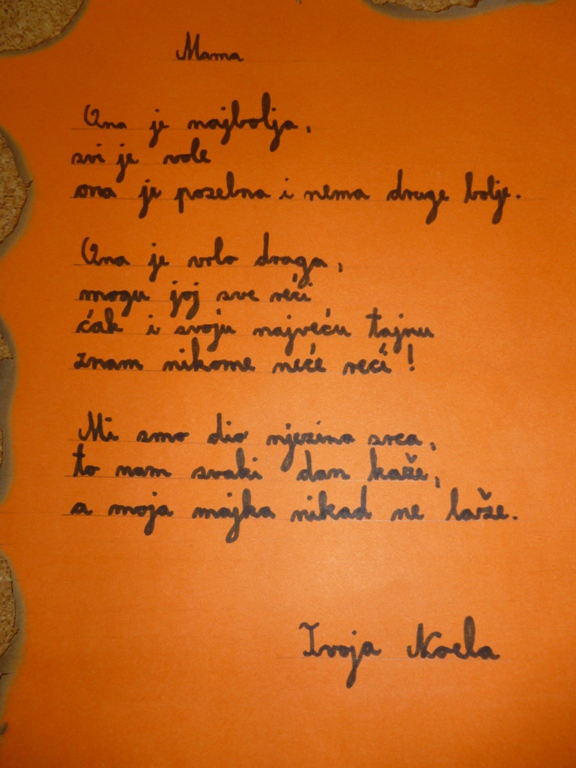 Mama
Ona je najbolja,
svi je vole
ona je posebna i nema druge bolje.
Ona je vrlo draga,
mogu joj sve reći
ćak i svoju najveću tajnu
znam nikome neće reći!
Mi smo dio njezina srca,
to nam svaki dan kaže,
a moja majka nikad ne laže.
Tvoja Noela